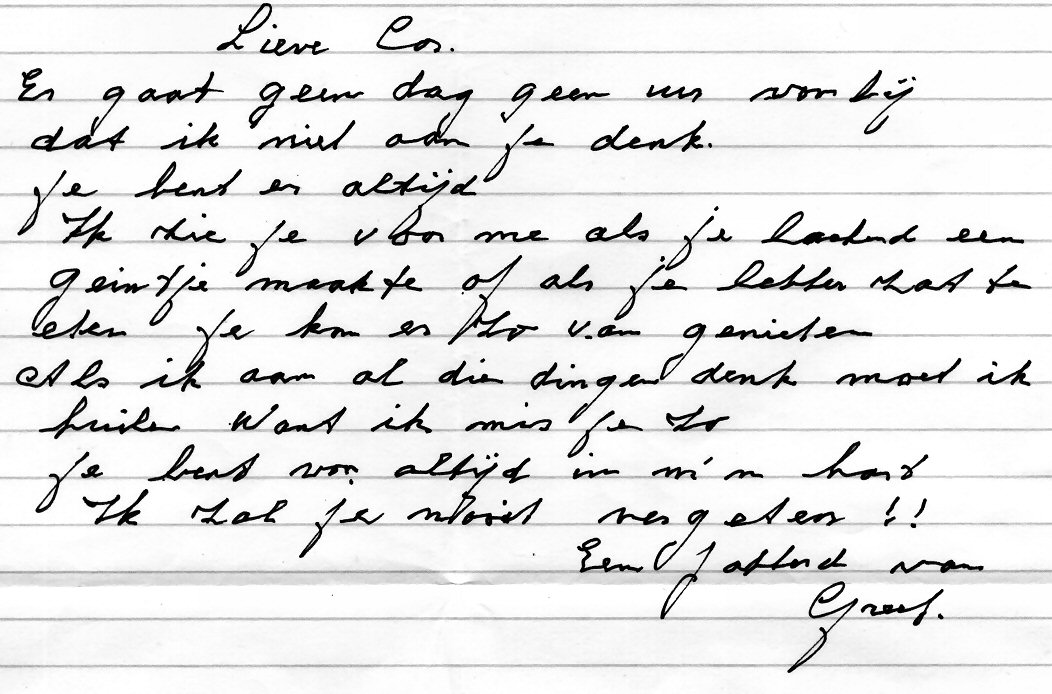 Lieve Cor.
Er gaat geen dag geen uur voorbij
dat ik niet aan je denk.
Je bent er altijd
Ik zie je voor me als je lachend een
geintje maakte of als je lekker zat te
eten je kon er zo van genieten
Als ik aan al die dingen denk moet ik
huilen Want ik mis je zo
Je bent voor altijd in m'n hart
Ik zal je nooit vergeten !!
Een van
Greet.